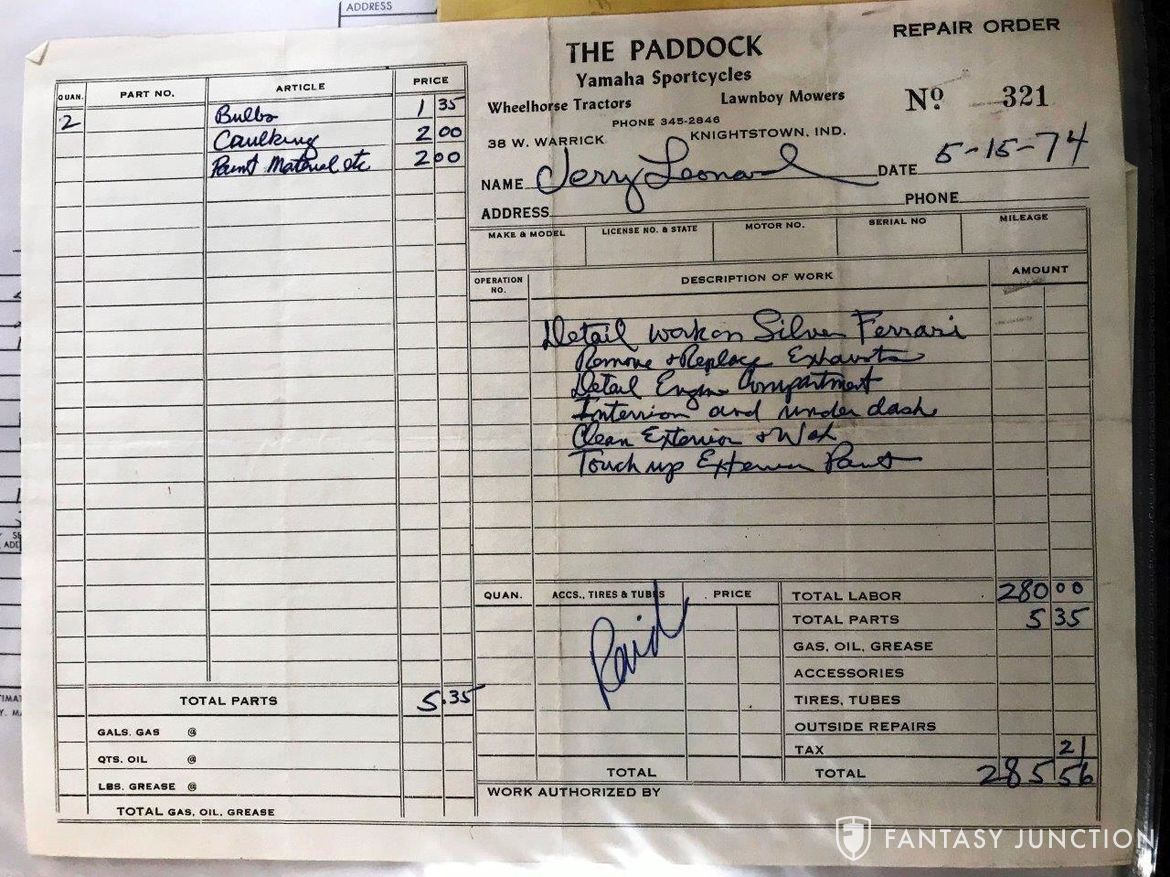 ADDRESS
REPAIR ORDER
THE PADDOCK
Yamaha Sportcycles
Wheelhorse Tractors Lawnboy Mowers
Nº 321
PHONE 345-2846
38 W. WARRICK KNIGHTSTOWN, IND.
NAME Jerry Leonard DATE 5-15-74
ADDRESS PHONE
MAKE & MODEL LICENSE NO. & STATE MOTOR NO. SERIAL NO MILEAGE
QUAN. PART NO. ARTICLE PRICE
2 Bulbs 1 35
Caulking 2 00
Paint Material etc 2 00
TOTAL PARTS 5.35
GALS. GAS @
QTS. OIL @
LBS. GREASE @
TOTAL GAS, OIL, GREASE
OPERATION NO. DESCRIPTION OF WORK AMOUNT
Detail work on Silver Ferrari
Remove & Replace Exhausts
Detail Engine Compartment
Interrior and under dash
Clean Exterior & Wax
Touch up Exterior Paint
QUAN. ACCS., TIRES & TUBES PRICE
Paid
TOTAL
TOTAL LABOR 280 00
TOTAL PARTS 5 35
GAS, OIL, GREASE
ACCESSORIES
TIRES, TUBES
OUTSIDE REPAIRS
TAX 21
TOTAL 285 56
WORK AUTHORIZED BY
FANTASY JUNCTION